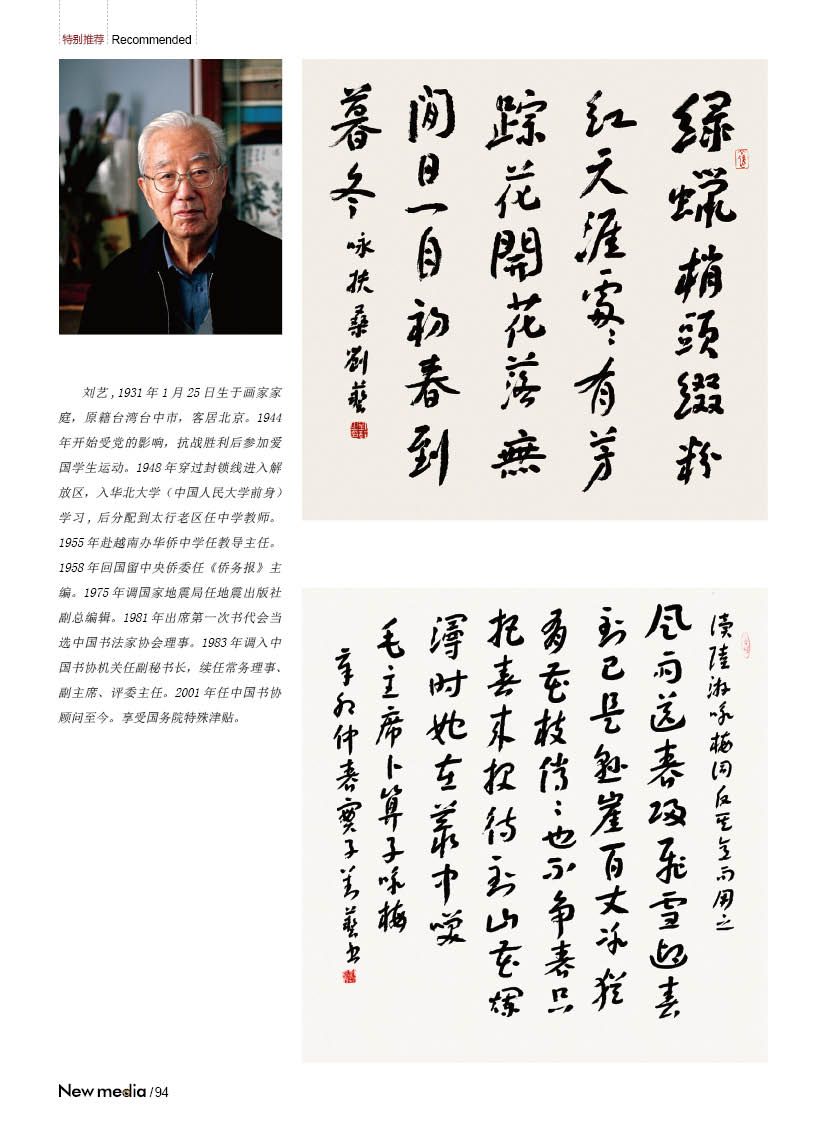 特别推荐 Recommended
绿蠟梢頭缀粉
红天涯處〻有芳
踪花開花落無
間日一自初春到
暮冬 咏扶桑劉藝
刘艺,1931 年 1 月 25 日生于画家家
庭，原籍台湾台中市，客居北京。1944
年开始受党的影响，抗战胜利后参加爱
国学生运动。1948 年穿过封锁线进入解
放区，入华北大学（中国人民大学前身）
学习 , 后分配到太行老区任中学教师。
1955 年赴越南办华侨中学任教导主任。
1958 年回国留中央侨委任《侨务报》主
编。1975 年调国家地震局任地震出版社
副总编辑。1981 年出席第一次书代会当
选中国书法家协会理事。1983 年调入中
国书协机关任副秘书长，续任常务理事、
副主席、评委主任。2001 年任中国书协
顾问至今。享受国务院特殊津贴。
读陸游咏梅词反其意而用之
风雨送春歸飛雪迎春
到已是懸崖百丈冰猶
有花枝俏〻也不争春只
把春来报待到山花烂
漫时她在丛中笑
毛主席卜算子咏梅
辛卯仲春
New media / 94